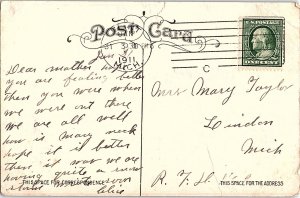 POST CARD
1 30
1911
MICH
C
ONE CENT
Dear mother
you are feeling better
then you were when
we were out there
we are all well
how is Mary neck
hope it is better
then it was we are
having quite a snow
Mrs Mary Taylor
Linden
Mich
THIS SPACE FOR CORRESPONDENCE
THIS SPACE FOR THE ADDRESS